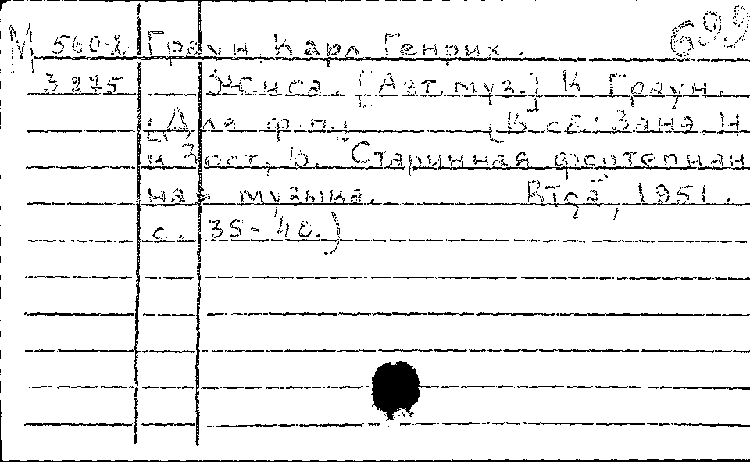 699
М 560-2 Граун, Карл Генрих.
3275 Жига. [Авт. муз.] К Граун.
[Для ф.п.] (В сб: Занд. Н.
и Зост, В. Старинная фортепиан
ная музыка. Rīgā, 1951.
с. 35-40.)